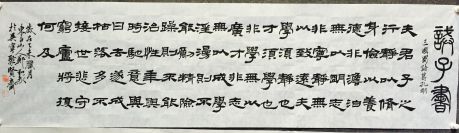 誡子書
三國諸葛孔明
夫君子之
行靜以修
身儉以養
德非澹泊
無以明志
非寧靜無
以致遠夫
學須靜也
才須學也
非學無以
廣才非志
無以成學
淫慢則不
能勵精險
躁則不能
治性年與
時馳意與
日去遂成
枯落多不
接世悲守
窮廬將復
何及